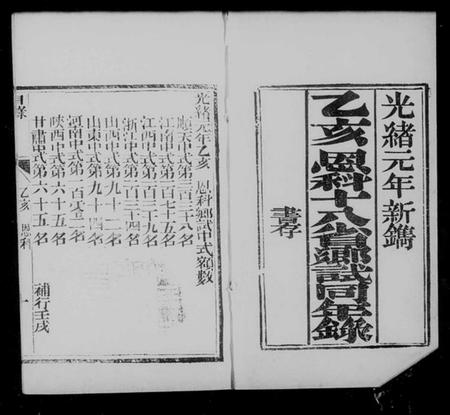 光緒元年新鐫
乙亥恩科十八省鄉試同年錄
書存
光緒元年乙亥 恩科鄉試中式額數
順天中式第三百三十八名
江南中式第一百七十五名
江西中式第一百三十九名
浙江中式第一百三十四名
山西中式第九十一名
山東中式第九十四名
河南中式第一百零三名
陝西中式第六十五名
甘肅中式第六十五名
補行壬戌
目錄
乙亥 恩科
一